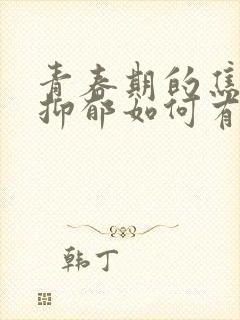 青春期的焦
抑郁如何有
韩丁